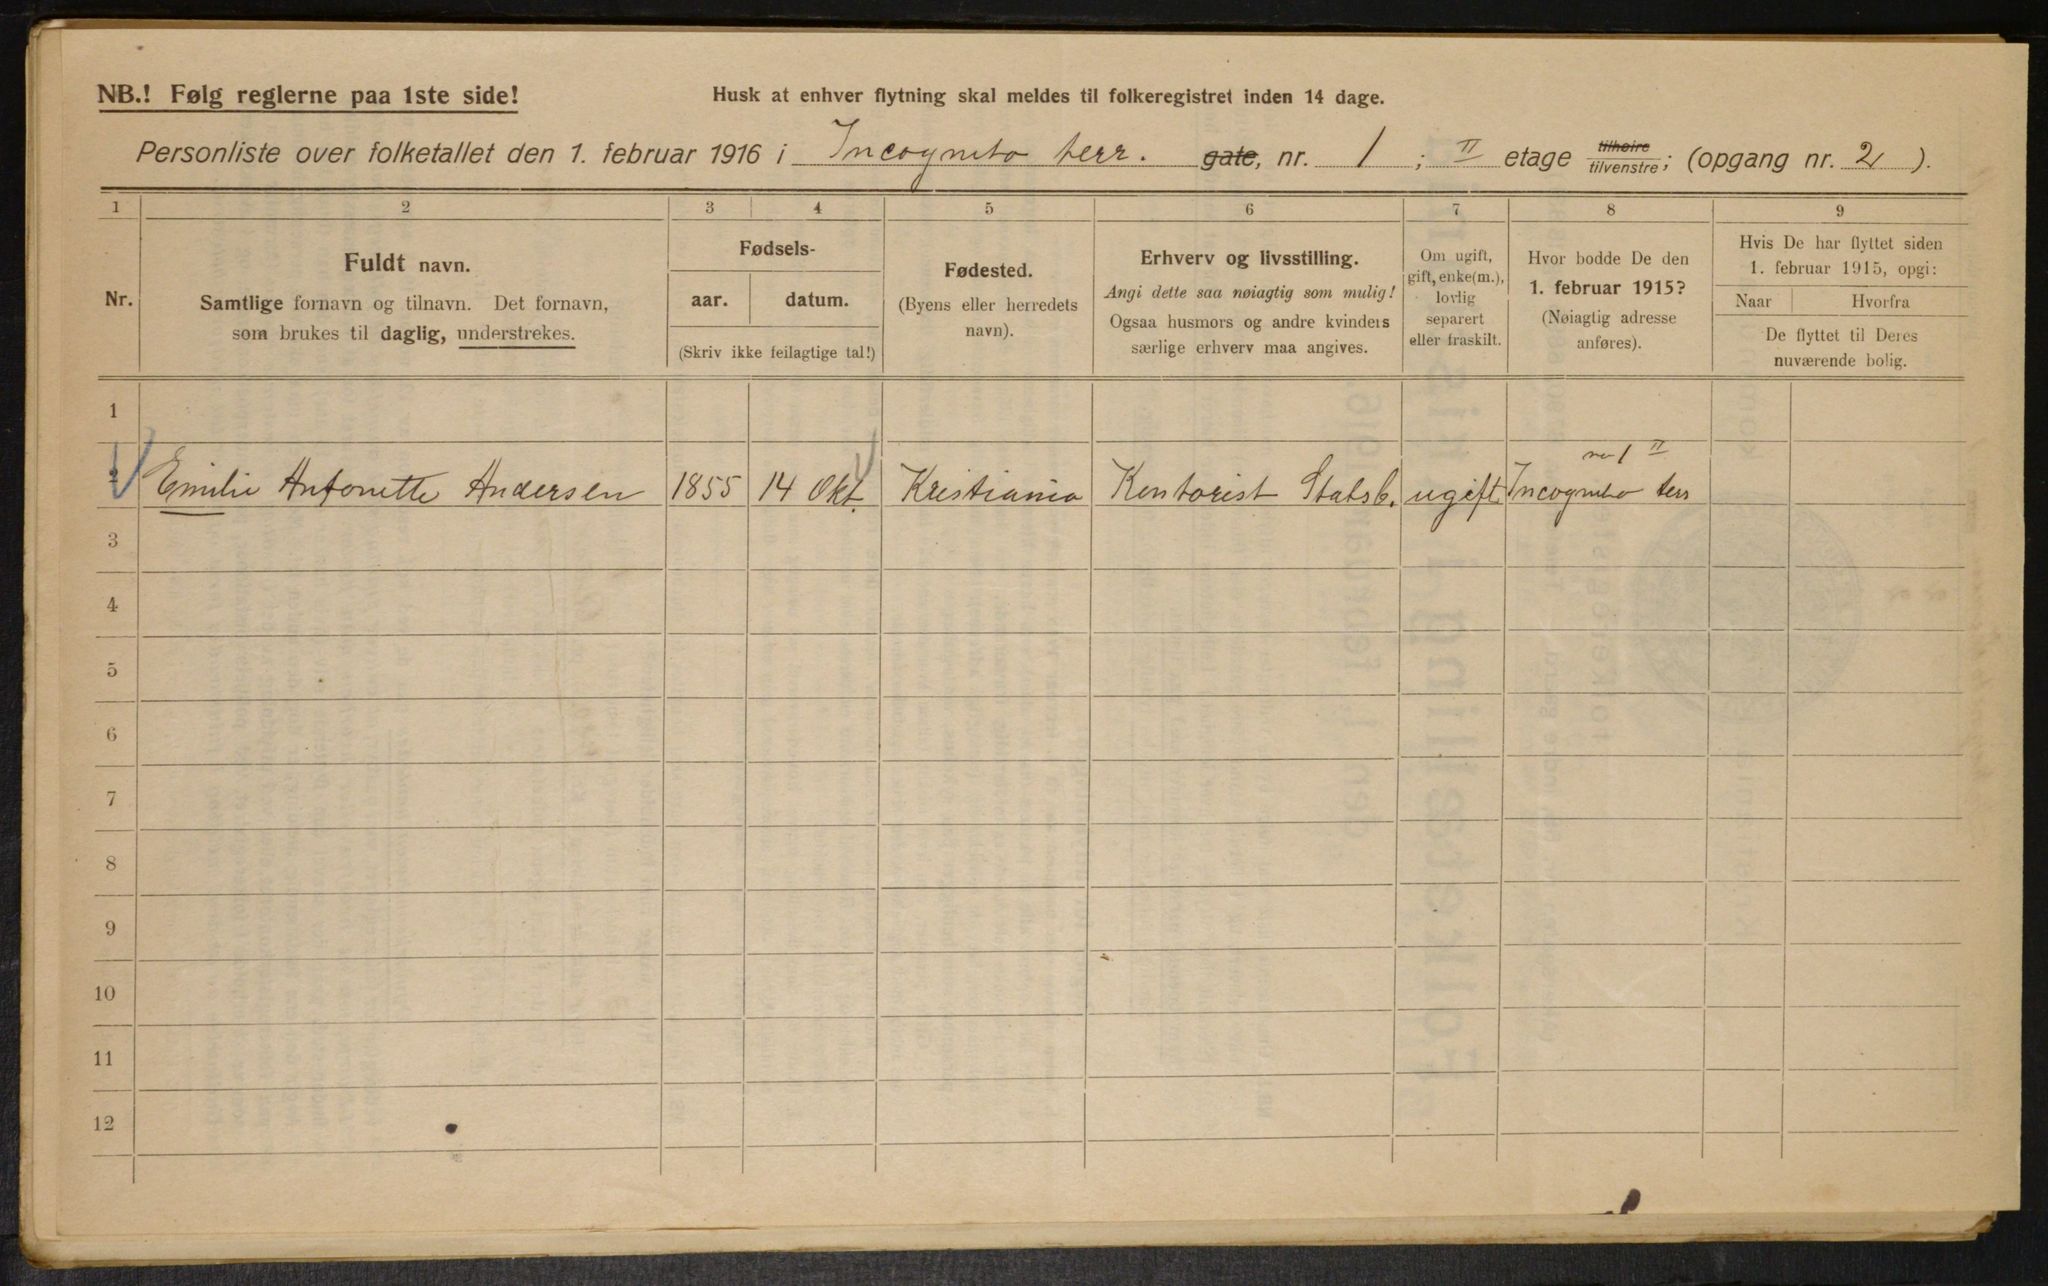 NB.! Følg reglerne paa 1ste side!
Husk at enhver flytning skal meldes til folkeregistret inden 14 dage.
Personliste over folketallet den 1. februar 1916 i Incognito terr. gate, nr. 1; II etage tilhøire/tilvenstre; (opgang nr. 2).
1 2 3 4 5 6 7 8 9
Nr.
Fuldt navn.
Samtlige fornavn og tilnavn. Det fornavn,
som brukes til daglig, understrekes.
Fødsels-
aar. datum.
(Skriv ikke feilagtige tal!)
Fødested.
(Byens eller herredets
navn).
Erhverv og livsstilling.
Angi dette saa nøiagtig som mulig!
Ogsaa husmors og andre kvinders
særlige erhverv maa angives.
Om ugift,
gift, enke(m.),
lovlig
separert
eller fraskilt.
Hvor bodde De den
1. februar 1915?
(Nøiagtig adresse
anføres).
Hvis De har flyttet siden
1. februar 1915, opgi:
Naar Hvorfra
De flyttet til Deres
nuværende bolig.
1
no 1 II
2 Emilie Antonette Andersen 1855 14 Okt. Kristiania Kontorist Statsb. ugift. Incognito terr
3
4
5
6
7
8
9
10
11
12